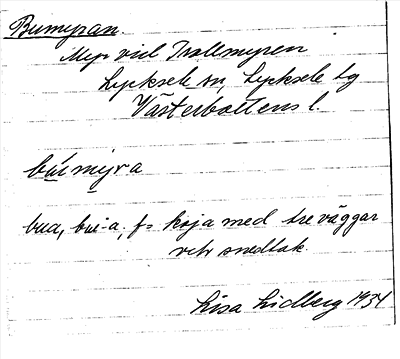 Bumyran.
Myr vid Trollmyren
Lycksele sn, Lycksele lg
Västerbottens l.
búimýra
bua, bu-a, f= koja med tre väggar
och snedtak.
Lisa Lidberg 1934